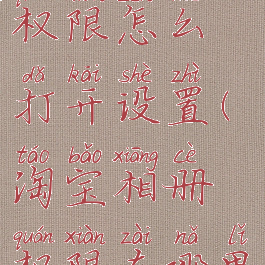 权限怎么
dǎ kāi shè zhì
打开设置(
táo bǎo xiāng cè
淘宝相册
quán xiàn zài nǎ lǐ
权限在哪里